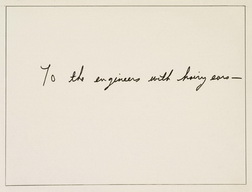 To the engineers with hairy ears—